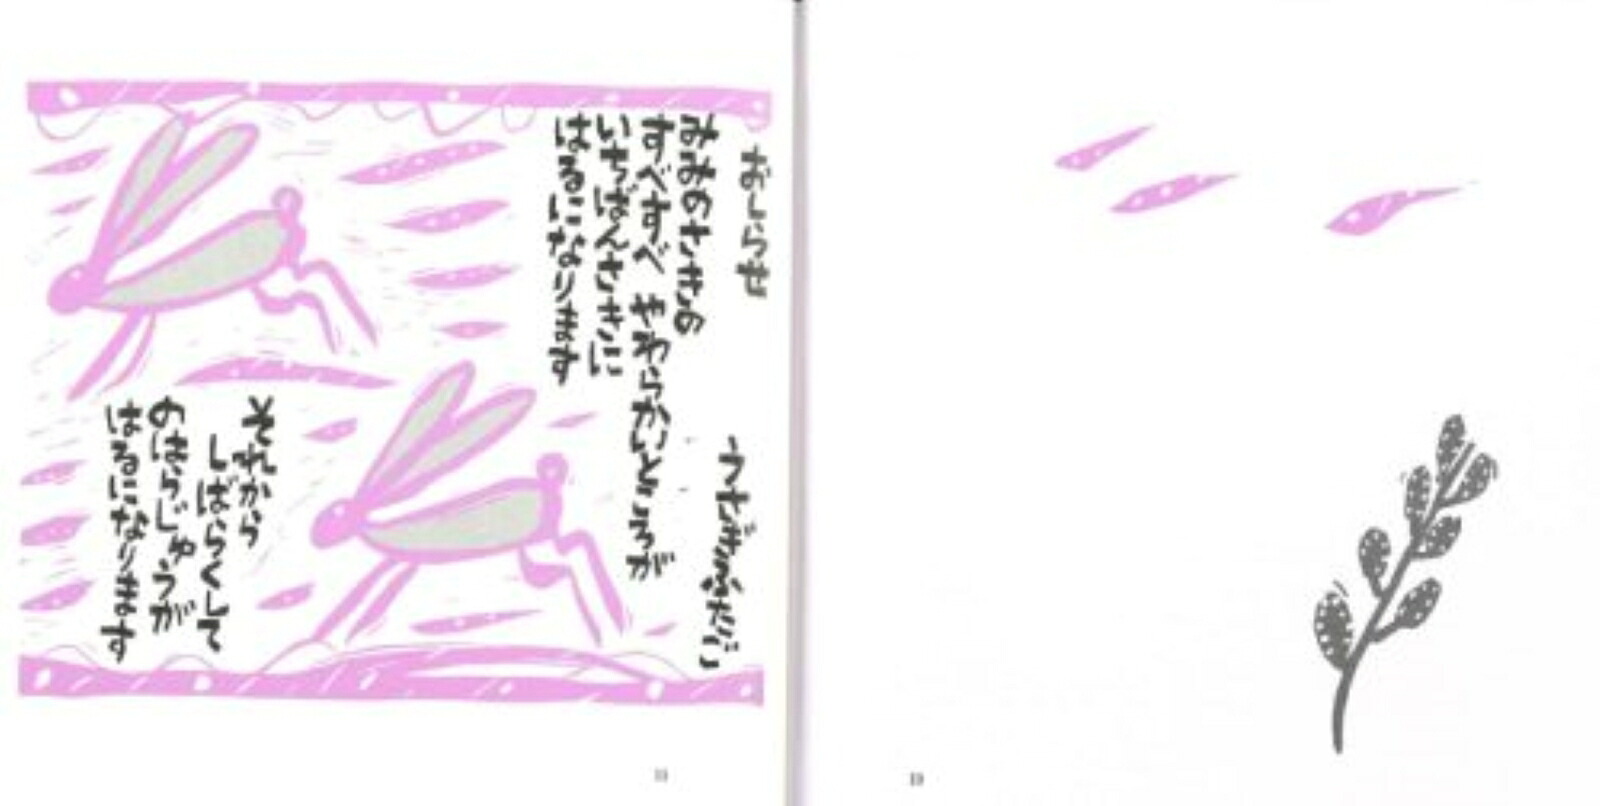 おしらせ
うさぎふたご
みみのさきの
すべすべ やわらかいところが
いちばんさきに
はるになります
それから
しばらくして
のはらじゅうが
はるになります